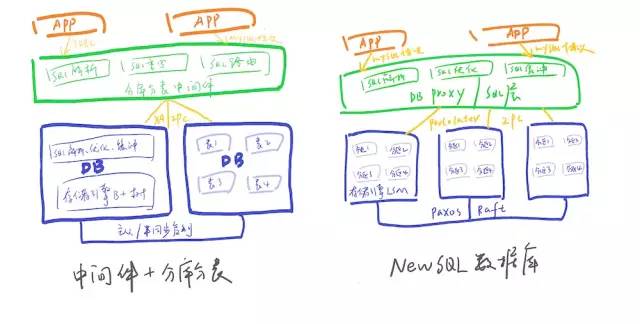 APP
APP
JDBC
mysql协议
SQL解析
SQL重写
SQL路由
分库分表中间件
XA
2PC
SQL解析、优化、缓冲
DB
存储引擎B+树
表1
表2
DB
表3
表4
主从/半同步复制
中间件+分库分表
APP
APP
mysql协议
mysql协议
SQL解析
SQL优化
SQL缓冲
DB proxy / SQL层
percolator
2PC
分区1
分区2
分区3
分区4
存储引擎LSM
分区1
分区2
分区3
分区4
分区1
分区2
分区3
分区4
paxos
Raft
NewSQL数据库